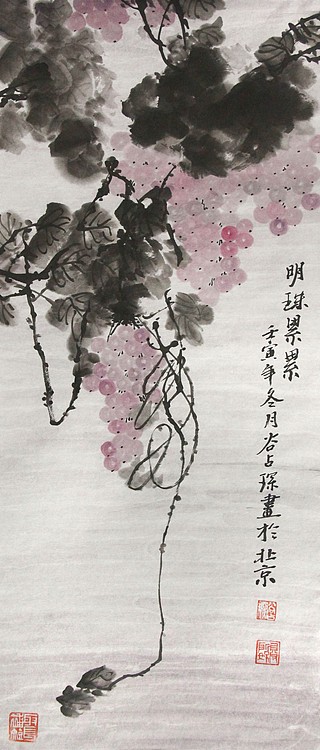 明珠累累
壬寅年冬月谷占琛畫於北京